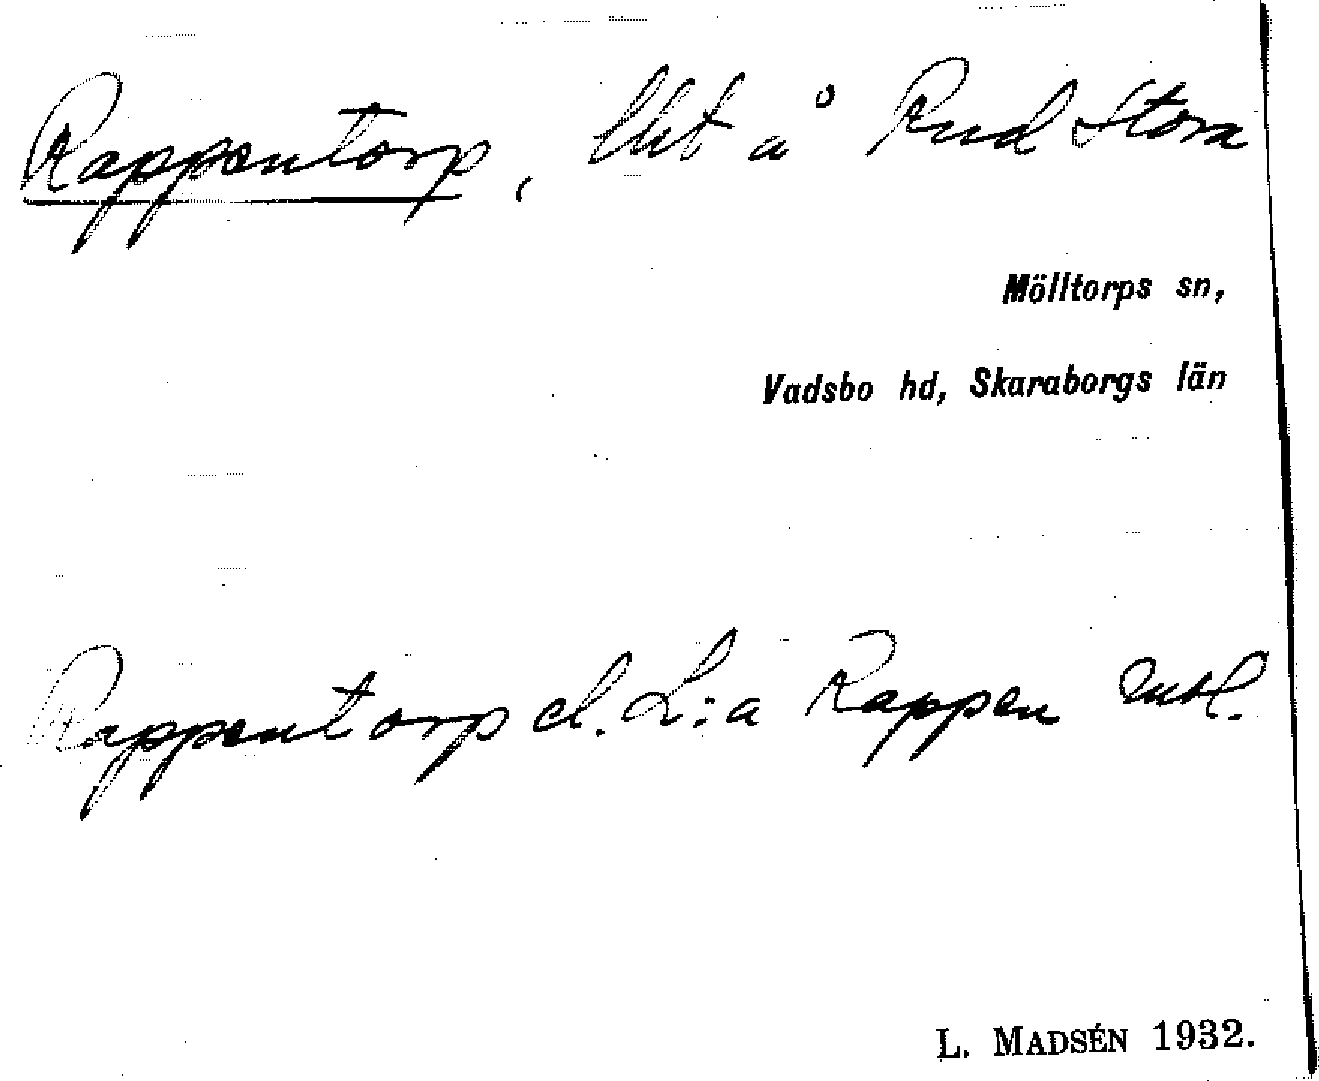 Rappentorp, lht å Rud Stora
Mölltorps sn,
Vadsbo hd, Skaraborgs län
Rappentorp el. L:a Rappen
L. MADSÉN 1932.